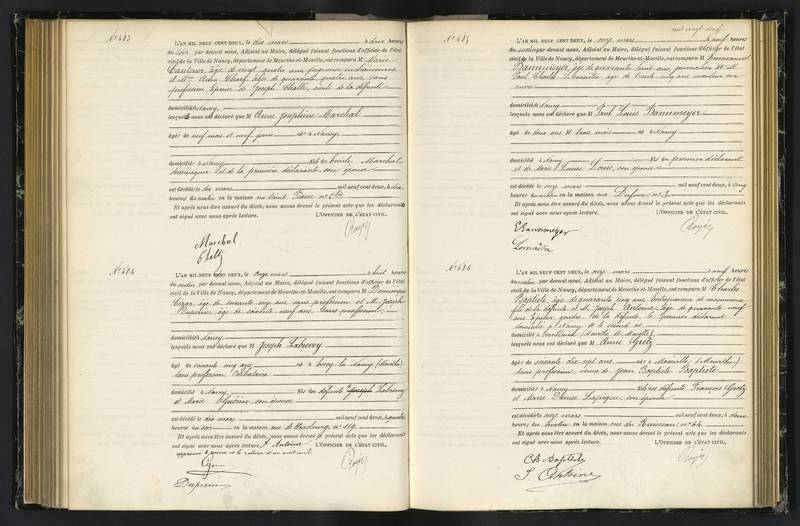 N° 483
L'AN MIL NEUF CENT DEUX, le dix mars à deux heures
du soir par devant nous, Adjoint au Maire, délégué faisant fonctions d'officier de l'état
civil de la Ville de Nancy, département de Meurthe-et-Moselle, ont comparu M Marie
âgée de vingt quatre ans
et Mme âgée de quarante quatre ans, sans
profession, épouse de Joseph de la défunte
domiciliés à Nancy
lesquels nous ont déclaré que M Anne Joséphine Marchal
âgé de neuf mois et neuf jours né à Nancy
domicilié à Nancy fils de Emile Marchal
et de la première déclarante son épouse
est décédé le dix mars mil neuf cent deux, à dix
heures du matin en la maison rue Saint Fiacre n°
Et après nous être assuré du décès, nous avons dressé le présent acte que les déclarants
ont signé avec nous après lecture. L'OFFICIER DE L'ÉTAT CIVIL,
Marchal
N° 484
L'AN MIL NEUF CENT DEUX, le onze mars à huit heures
du matin par devant nous, Adjoint au Maire, délégué faisant fonctions d'officier de l'état
civil de la Ville de Nancy, département de Meurthe-et-Moselle, ont comparu M Dominique
âgé de soixante cinq ans, sans profession et M. Joseph
âgé de soixante neuf ans, sans profession
domiciliés à Nancy
lesquels nous ont déclaré que M Joseph
âgé de soixante cinq ans né à Essey les Nancy (Meurthe)
sans profession célibataire
domicilié à Nancy fils des défunts Joseph
et Marie son épouse
est décédé le dix mars mil neuf cent deux, à quatre
heures du soir en la maison rue de Strasbourg n° 119
Et après nous être assuré du décès, nous avons dressé le présent acte que les déclarants
ont signé avec nous après lecture. L'OFFICIER DE L'ÉTAT CIVIL,
cent vingt neuf
N° 485
L'AN MIL NEUF CENT DEUX, le onze mars à neuf heures
du matin par devant nous, Adjoint au Maire, délégué faisant fonctions d'officier de l'état
civil de la Ville de Nancy, département de Meurthe-et-Moselle, ont comparu M Emmanuel
Bannmeyer, âgé de quarante huit ans, journalier et M.
Paul Charles Lemaître, âgé de trente cinq ans
domiciliés à Nancy
lesquels nous ont déclaré que M Paul Louis Bannmeyer
âgé de deux ans et trois mois né à Nancy
domicilié à Nancy fils du premier déclarant
et de Marie Louise Louis, son épouse
est décédé le onze mars mil neuf cent deux, à cinq
heures du matin en la maison rue Dufour n° 3
Et après nous être assuré du décès, nous avons dressé le présent acte que les déclarants
ont signé avec nous après lecture. L'OFFICIER DE L'ÉTAT CIVIL,
Bannmeyer
Lemaître
N° 486
L'AN MIL NEUF CENT DEUX, le onze mars à neuf heures
du matin par devant nous, Adjoint au Maire, délégué faisant fonctions d'officier de l'état
civil de la Ville de Nancy, département de Meurthe-et-Moselle, ont comparu M Charles
Baptiste, âgé de quarante cinq ans, entrepreneur de maçonnerie
fils de la défunte et M. Joseph Antoine, âgé de quarante neuf
ans, gendre de la défunte, le premier déclarant
domicilié à Nancy et le second
domiciliés à (Meurthe et Moselle)
lesquels nous ont déclaré que M Anne
âgé de soixante dix sept ans né à (Meurthe)
sans profession, veuve de Jean Baptiste Baptiste
domicilié à Nancy fils des défunts François
et Marie son épouse
est décédé le onze mars mil neuf cent deux, à deux
heures du matin en la maison rue du Ruisseau n° 64
Et après nous être assuré du décès, nous avons dressé le présent acte que les déclarants
ont signé avec nous après lecture. L'OFFICIER DE L'ÉTAT CIVIL,
Ch Baptiste
J Antoine